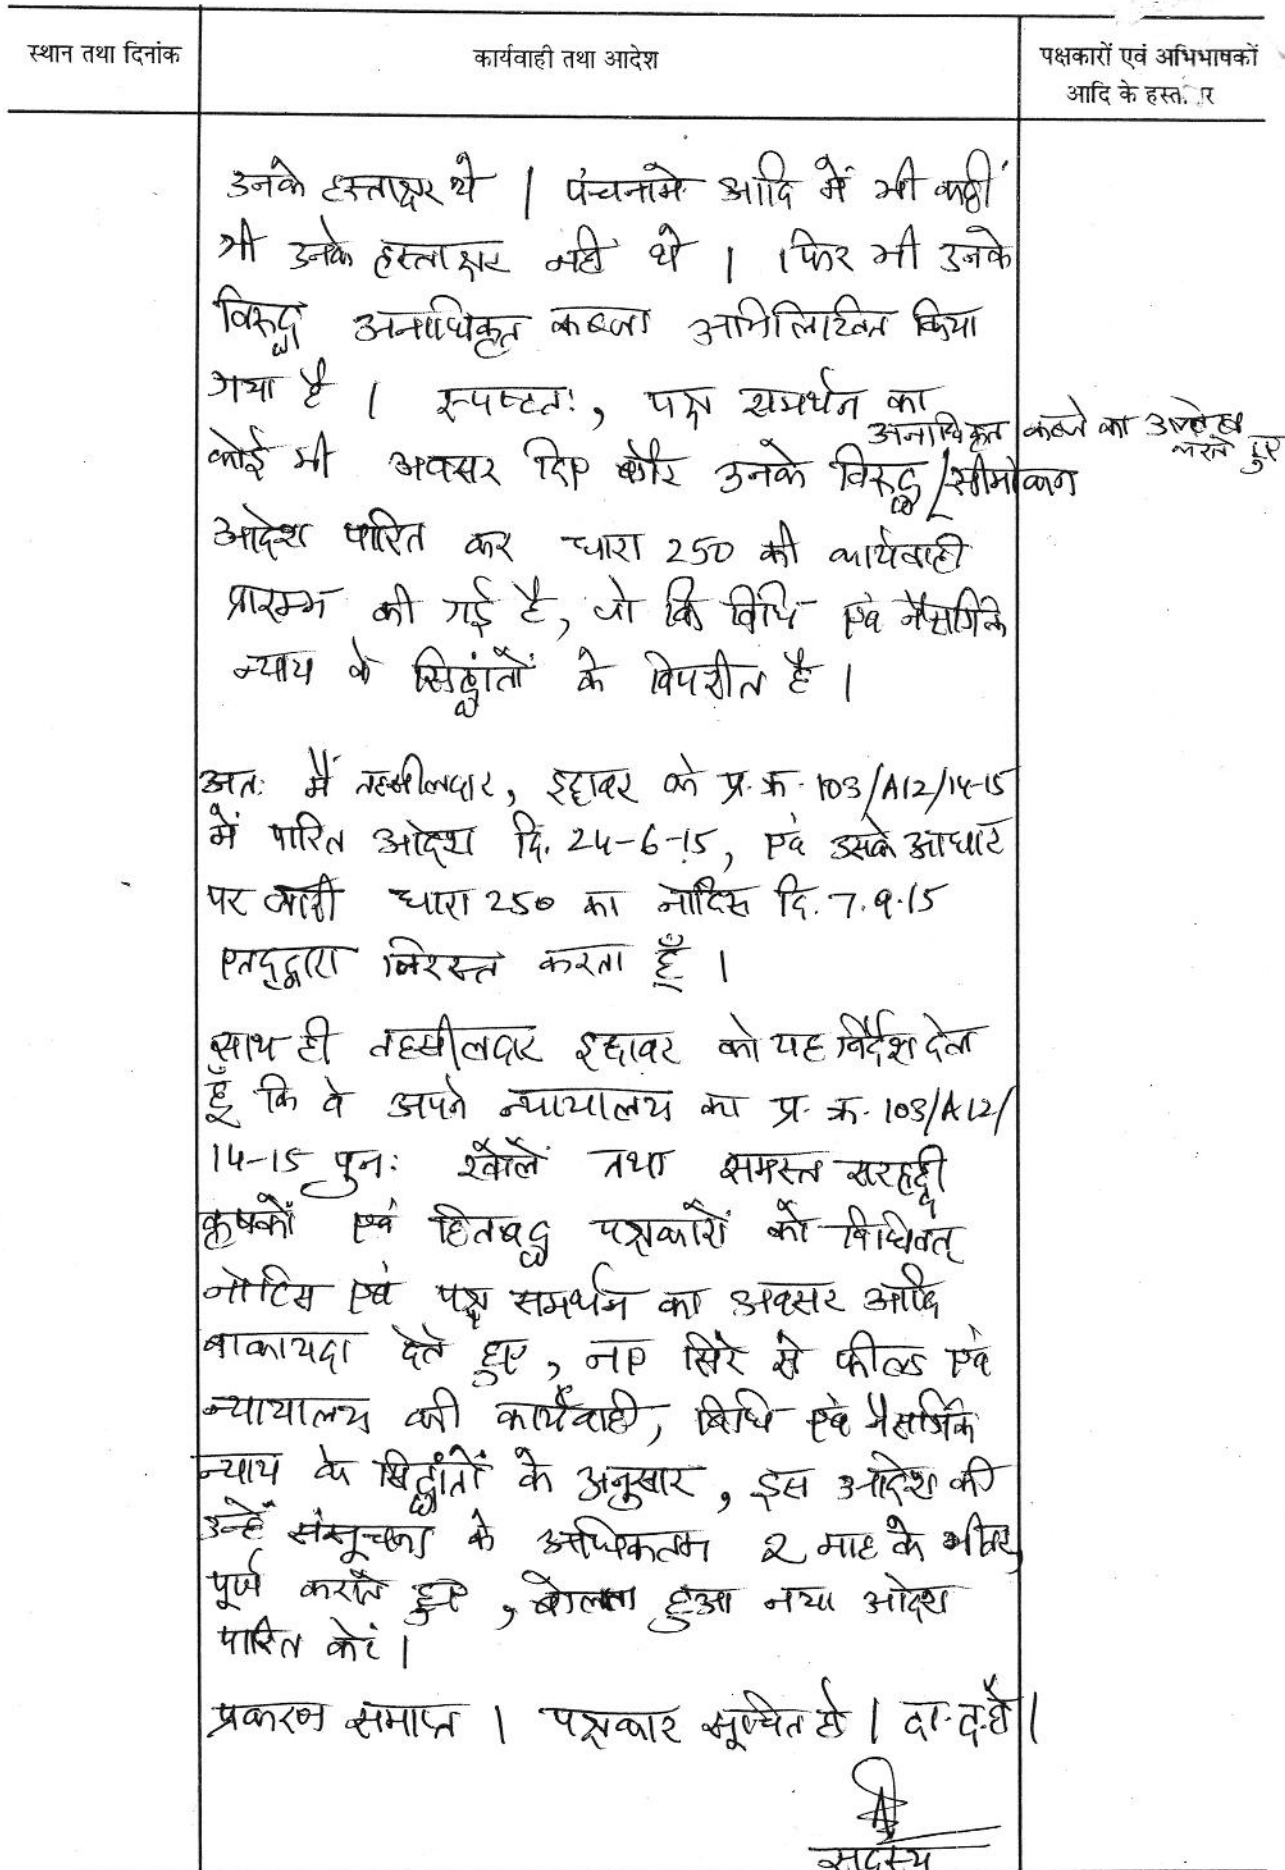 स्थान तथा दिनांक
कार्यवाही तथा आदेश
पक्षकारों एवं अभिभाषकों
आदि के हस्त
उनके हस्ताक्षर थे । पंचनामे आदि में भी कहीं
भी उनके हस्ताक्षर नही थे । फिर भी उनके
विरुद्ध अनाधिकृत कब्जा अभिलिखित किया
गया है । स्पष्टतः, पक्ष समर्थन का
अनाधिकृत कब्जे का उल्लेख
करते हुए
कोई भी अवसर दिए बगैर उनके विरुद्ध / सीमांकन
आदेश पारित कर धारा 250 की कार्यवाही
प्रारम्भ की गई है, जो कि विधि एवं नैसर्गिक
न्याय के सिद्धांतों के विपरीत है ।
अतः मैं तहसीलदार, इछावर के प्र. क्र. 103/A12/14-15
में पारित आदेश दि. 24-6-15, एवं इसके आधार
पर जारी धारा 250 का नोटिस दि. 7.9.15
एतद्द्वारा निरस्त करता हूँ ।
साथ ही तहसीलदार इछावर को यह निर्देश देता
हूँ कि वे अपने न्यायालय का प्र. क्र. 103/A12/
14-15 पुनः खोलें तथा समस्त सरहद्दी
कृषकों एवं हितबद्ध पक्षकारों को विधिवत्
नोटिस एवं पक्ष समर्थन का अवसर आदि
बाकायदा देते हुए, नए सिरे से फील्ड एवं
न्यायालय की कार्यवाही, विधि एवं नैसर्गिक
न्याय के सिद्धांतों के अनुसार, इस आदेश की
उन्हें संसूचना के अधिकतम 2 माह के भीतर
पूर्ण कराते हुए, बोलता हुआ नया आदेश
पारित करें ।
प्रकरण समाप्त । पक्षकार सूचित हों । दा. द. हो ।
सदस्य